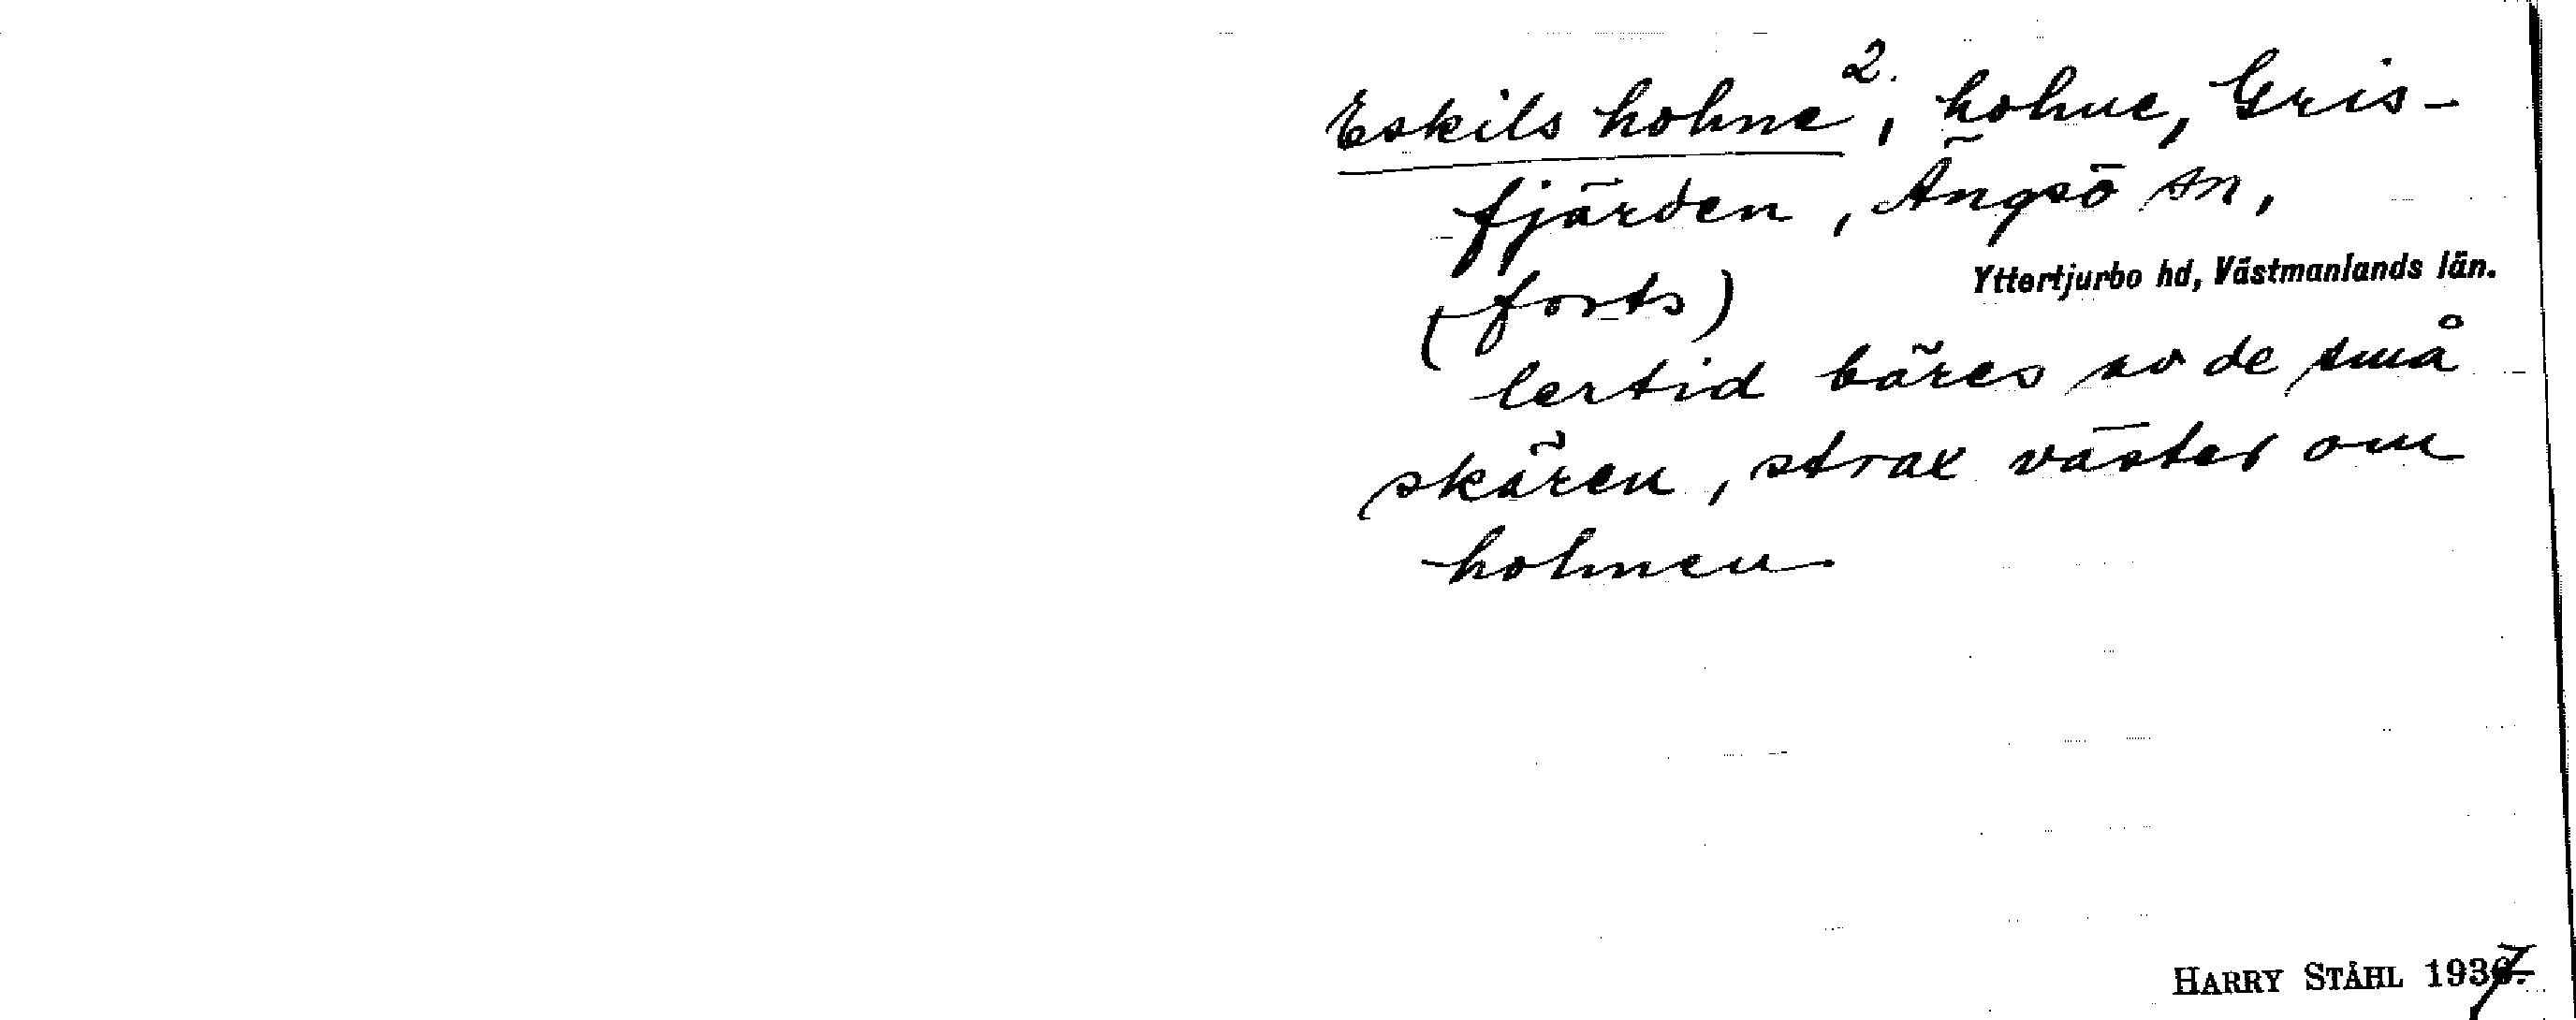 Eskils holme 2., holme, Gris-
fjärden, Ängsö sn,
Yttertjurbo hd, Västmanlands län.
(forts)
lertid bäres av de små
skären, strax väster om
holmen
HARRY STÅHL 1937.